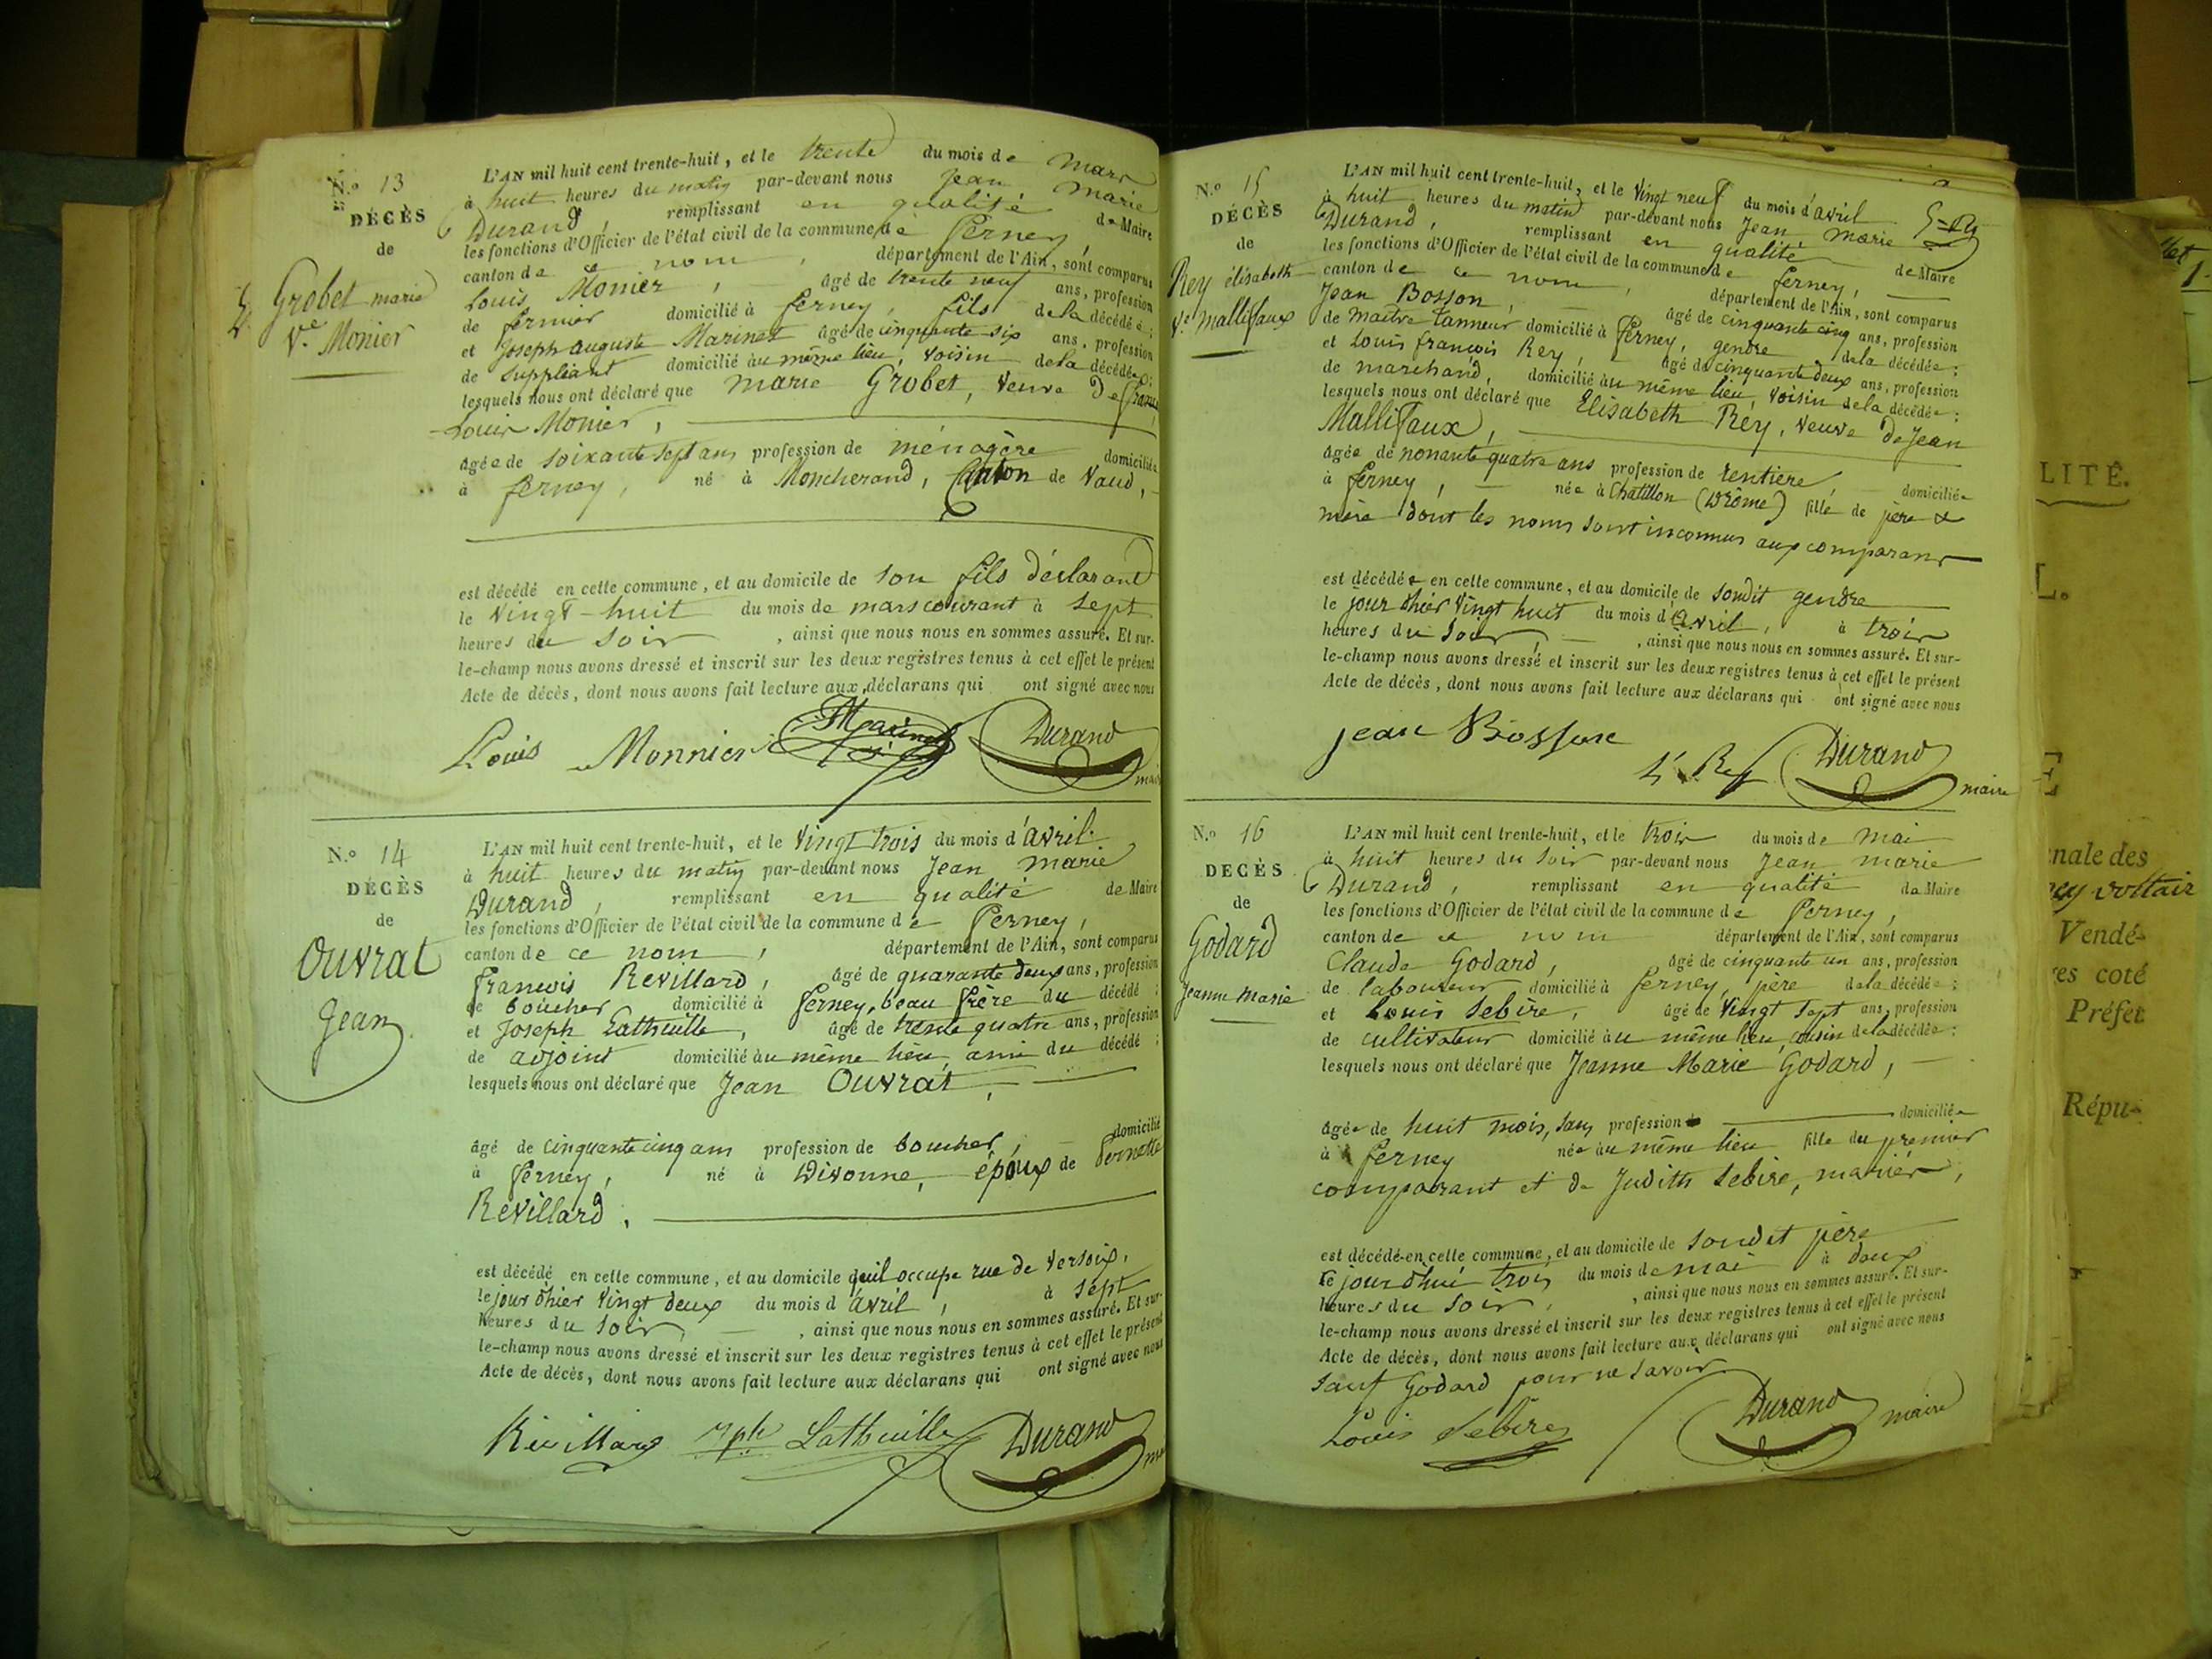 N.º 13
DÉCÈS
de
Grobet marie
Vᵉ Monier
L'AN mil huit cent trente-huit, et le trente du mois de Mars
à huit heures du matin par-devant nous Jean Marie
Durand, remplissant en qualité de Maire
les fonctions d'Officier de l'état civil de la commune de Ferney,
canton de ce nom, département de l'Ain, sont comparus
Louis Monier, âgé de trente neuf ans, profession
de fermier domicilié à ferney, fils de la décédée;
et Joseph auguste Marinet âgé de cinquante six ans, profession
de suppléant domicilié au même lieu, voisin de la décédée;
lesquels nous ont déclaré que Marie Grobet, veuve De
Louis Monier,
âgée de soixante sept ans profession de ménagère domiciliée
à ferney, né à Moncherand, Canton de Vaud,
est décédé en cette commune, et au domicile de son fils déclarant
le vingt-huit du mois de mars courant à sept
heures du soir, ainsi que nous nous en sommes assuré. Et sur-
le-champ nous avons dressé et inscrit sur les deux registres tenus à cet effet le présent
Acte de décès, dont nous avons fait lecture aux déclarans qui ont signé avec nous
Louis Monnier Marinet Durand
N.º 14
DÉCÈS
de
Ouvrat
Jean
L'AN mil huit cent trente-huit, et le vingt trois du mois d'avril
à huit heures du matin par-devant nous Jean Marie
Durand, remplissant en qualité de Maire
les fonctions d'Officier de l'état civil de la commune de Ferney,
canton de ce nom, département de l'Ain, sont comparus
francois Revillard, âgé de quarante deux ans, profession
de boucher domicilié à ferney, beau frère du décédé;
et Joseph Lathuille, âgé de trente quatre ans, profession
de adjoint domicilié au même lieu, ami du décédé;
lesquels nous ont déclaré que Jean Ouvrat,
âgé de cinquante cinq ans profession de boucher, domicilié
à ferney, né à Divonne, époux de Pernette
Revillard.
est décédé en cette commune, et au domicile qu'il occupe rue de Versoix,
le jour d'hier vingt deux du mois d'avril, à sept
heures du soir, ainsi que nous nous en sommes assuré. Et sur-
le-champ nous avons dressé et inscrit sur les deux registres tenus à cet effet le présent
Acte de décès, dont nous avons fait lecture aux déclarans qui ont signé avec nous
Revillard Jph Lathuille Durand
N.º 15
DÉCÈS
de
Rey élisabeth
Vᵉ Mallifaux
L'AN mil huit cent trente-huit, et le vingt neuf du mois d'avril
à huit heures du matin par-devant nous Jean Marie
Durand, remplissant en qualité de Maire
les fonctions d'Officier de l'état civil de la commune de ferney,
canton de ce nom, département de l'Ain, sont comparus
Jean Bosson, âgé de cinquante cinq ans, profession
de maître tanneur domicilié à Ferney, gendre de la décédée;
et Louis françois Rey, âgé de cinquante deux ans, profession
de marchand, domicilié au même lieu, voisin de la décédée;
lesquels nous ont déclaré que Elisabeth Rey, veuve de Jean
Mallifaux,
âgée de nonante quatre ans profession de rentière, domiciliée
à ferney, née à Chatillon (Drôme) fille de père &
mère dont les noms sont inconnus aux comparans
est décédée en cette commune, et au domicile de son dit gendre
le jour d'hier vingt huit du mois d'avril, à trois
heures du soir, ainsi que nous nous en sommes assuré. Et sur-
le-champ nous avons dressé et inscrit sur les deux registres tenus à cet effet le présent
Acte de décès, dont nous avons fait lecture aux déclarans qui ont signé avec nous
Jean Bosson
Ls Rey Durand maire
N.º 16
DÉCÈS
de
Godard
Jeanne Marie
L'AN mil huit cent trente-huit, et le trois du mois de mai
à huit heures du soir par-devant nous Jean Marie
Durand, remplissant en qualité de Maire
les fonctions d'Officier de l'état civil de la commune de Ferney,
canton de ce nom département de l'Ain, sont comparus
Claude Godard, âgé de cinquante un ans, profession
de laboureur domicilié à ferney, père de la décédée;
et Louis Sebire, âgé de vingt sept ans, profession
de cultivateur domicilié au même lieu, cousin de la décédée;
lesquels nous ont déclaré que Jeanne Marie Godard,
âgée de huit mois, sans profession domiciliée
à ferney née au même lieu fille du premier
comparant et de Judith Sebire, mariés,
est décédée en cette commune, et au domicile de son dit père
le jourd'hui trois du mois de mai à deux
heures du soir, ainsi que nous nous en sommes assuré. Et sur-
le-champ nous avons dressé et inscrit sur les deux registres tenus à cet effet le présent
Acte de décès, dont nous avons fait lecture aux déclarans qui ont signé avec nous
sauf Godard pour ne savoir
Louis Sebire Durand maire
LITÉ.
L.
E
nale des
voltair
Vendé-
es coté
Préfet
Répu-